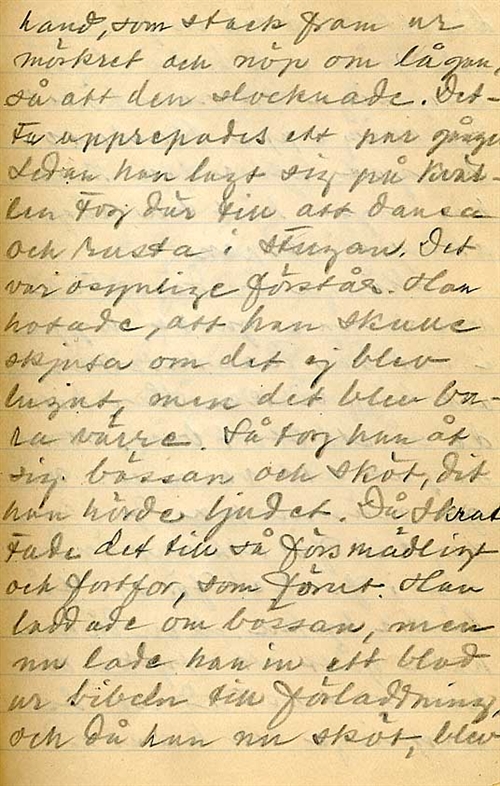 hand, som stack fram ur
mörkret och nöp om lågan,
så att den slocknade. Det-
ta upprepades ett par gånger
Sedan han lagt sig på kväl-
len tog där till att dansa
och rusta i stugan. Det
var osynlige förstås. Han
hotade, att han skulle
skjuta om det ej blev
lugnt, men det blev ba-
ra värre. Så tog han åt
sig bössan och sköt, dit
han hörde ljudet. Då skrat
tade det till så försmädligt
och fortfor, som förut. Han
laddade om bössan, men
nu lade han in ett blad
ur bibeln till förladdning,
och då han nu sköt, blev